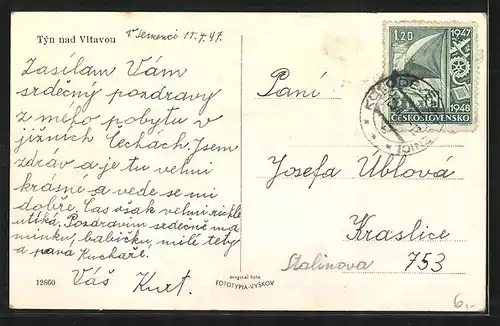 Týn nad Vltavou
v Semenci 11.7.47.
Zasílam Vám
srdečný pozdravy
z mého pobytu v
jižních Čechách. Jsem
zdráv a je tu velmi
krásné a vede se mi
dobře. Čas však velmi richle
utíká. Pozdravím srdečně ma
minku, babičku, milé tety
a pana Kuchaře.
Váš Kurt.
12860
original foto
FOTOTYPIA-VYŠKOV
1.20
1947
1948
ČESKOSLOVENSKO
Paní
Josefa Úblová
Kraslice
Stalinova 753
6,-